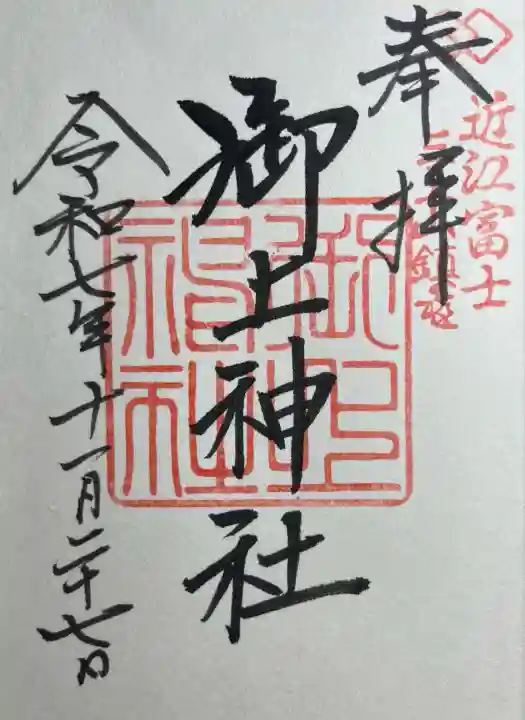 奉拝
近江富士
三上山鎮座
御上神社
御上神社
令和七年十一月二十七日